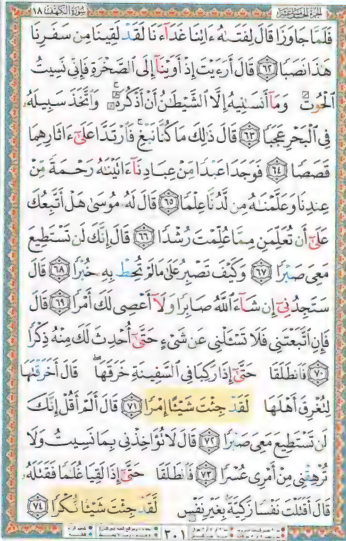 الجزء الخامس عشر سُورَةُ الكَهْفِ ١٨
فَلَمَّا جَاوَزَا قَالَ لِفَتَىٰهُ ءَاتِنَا غَدَآءَنَا لَقَدْ لَقِينَا مِن سَفَرِنَا
هَٰذَا نَصَبًا ٦٢ قَالَ أَرَءَيْتَ إِذْ أَوَيْنَآ إِلَى ٱلصَّخْرَةِ فَإِنِّي نَسِيتُ
ٱلْحُوتَ وَمَآ أَنسَىٰنِيهُ إِلَّا ٱلشَّيْطَٰنُ أَنْ أَذْكُرَهُۥ وَٱتَّخَذَ سَبِيلَهُۥ
فِي ٱلْبَحْرِ عَجَبًا ٦٣ قَالَ ذَٰلِكَ مَا كُنَّا نَبْغِ فَٱرْتَدَّا عَلَىٰٓ ءَاثَارِهِمَا
قَصَصًا ٦٤ فَوَجَدَا عَبْدًا مِّنْ عِبَادِنَآ ءَاتَيْنَٰهُ رَحْمَةً مِّنْ
عِندِنَا وَعَلَّمْنَٰهُ مِن لَّدُنَّا عِلْمًا ٦٥ قَالَ لَهُۥ مُوسَىٰ هَلْ أَتَّبِعُكَ
عَلَىٰٓ أَن تُعَلِّمَنِ مِمَّا عُلِّمْتَ رُشْدًا ٦٦ قَالَ إِنَّكَ لَن تَسْتَطِيعَ
مَعِيَ صَبْرًا ٦٧ وَكَيْفَ تَصْبِرُ عَلَىٰ مَا لَمْ تُحِطْ بِهِۦ خُبْرًا ٦٨ قَالَ
سَتَجِدُنِيٓ إِن شَآءَ ٱللَّهُ صَابِرًا وَلَآ أَعْصِي لَكَ أَمْرًا ٦٩ قَالَ
فَإِنِ ٱتَّبَعْتَنِي فَلَا تَسْـَٔلْنِي عَن شَيْءٍ حَتَّىٰٓ أُحْدِثَ لَكَ مِنْهُ ذِكْرًا
٧٠ فَٱنطَلَقَا حَتَّىٰٓ إِذَا رَكِبَا فِي ٱلسَّفِينَةِ خَرَقَهَا قَالَ أَخَرَقْتَهَا
لِتُغْرِقَ أَهْلَهَا لَقَدْ جِئْتَ شَيْـًٔا إِمْرًا ٧١ قَالَ أَلَمْ أَقُلْ إِنَّكَ
لَن تَسْتَطِيعَ مَعِيَ صَبْرًا ٧٢ قَالَ لَا تُؤَاخِذْنِي بِمَا نَسِيتُ وَلَا
تُرْهِقْنِي مِنْ أَمْرِي عُسْرًا ٧٣ فَٱنطَلَقَا حَتَّىٰٓ إِذَا لَقِيَا غُلَٰمًا فَقَتَلَهُۥ
قَالَ أَقَتَلْتَ نَفْسًا زَكِيَّةً بِغَيْرِ نَفْسٍ لَّقَدْ جِئْتَ شَيْـًٔا نُّكْرًا ٧٤
٣٠١